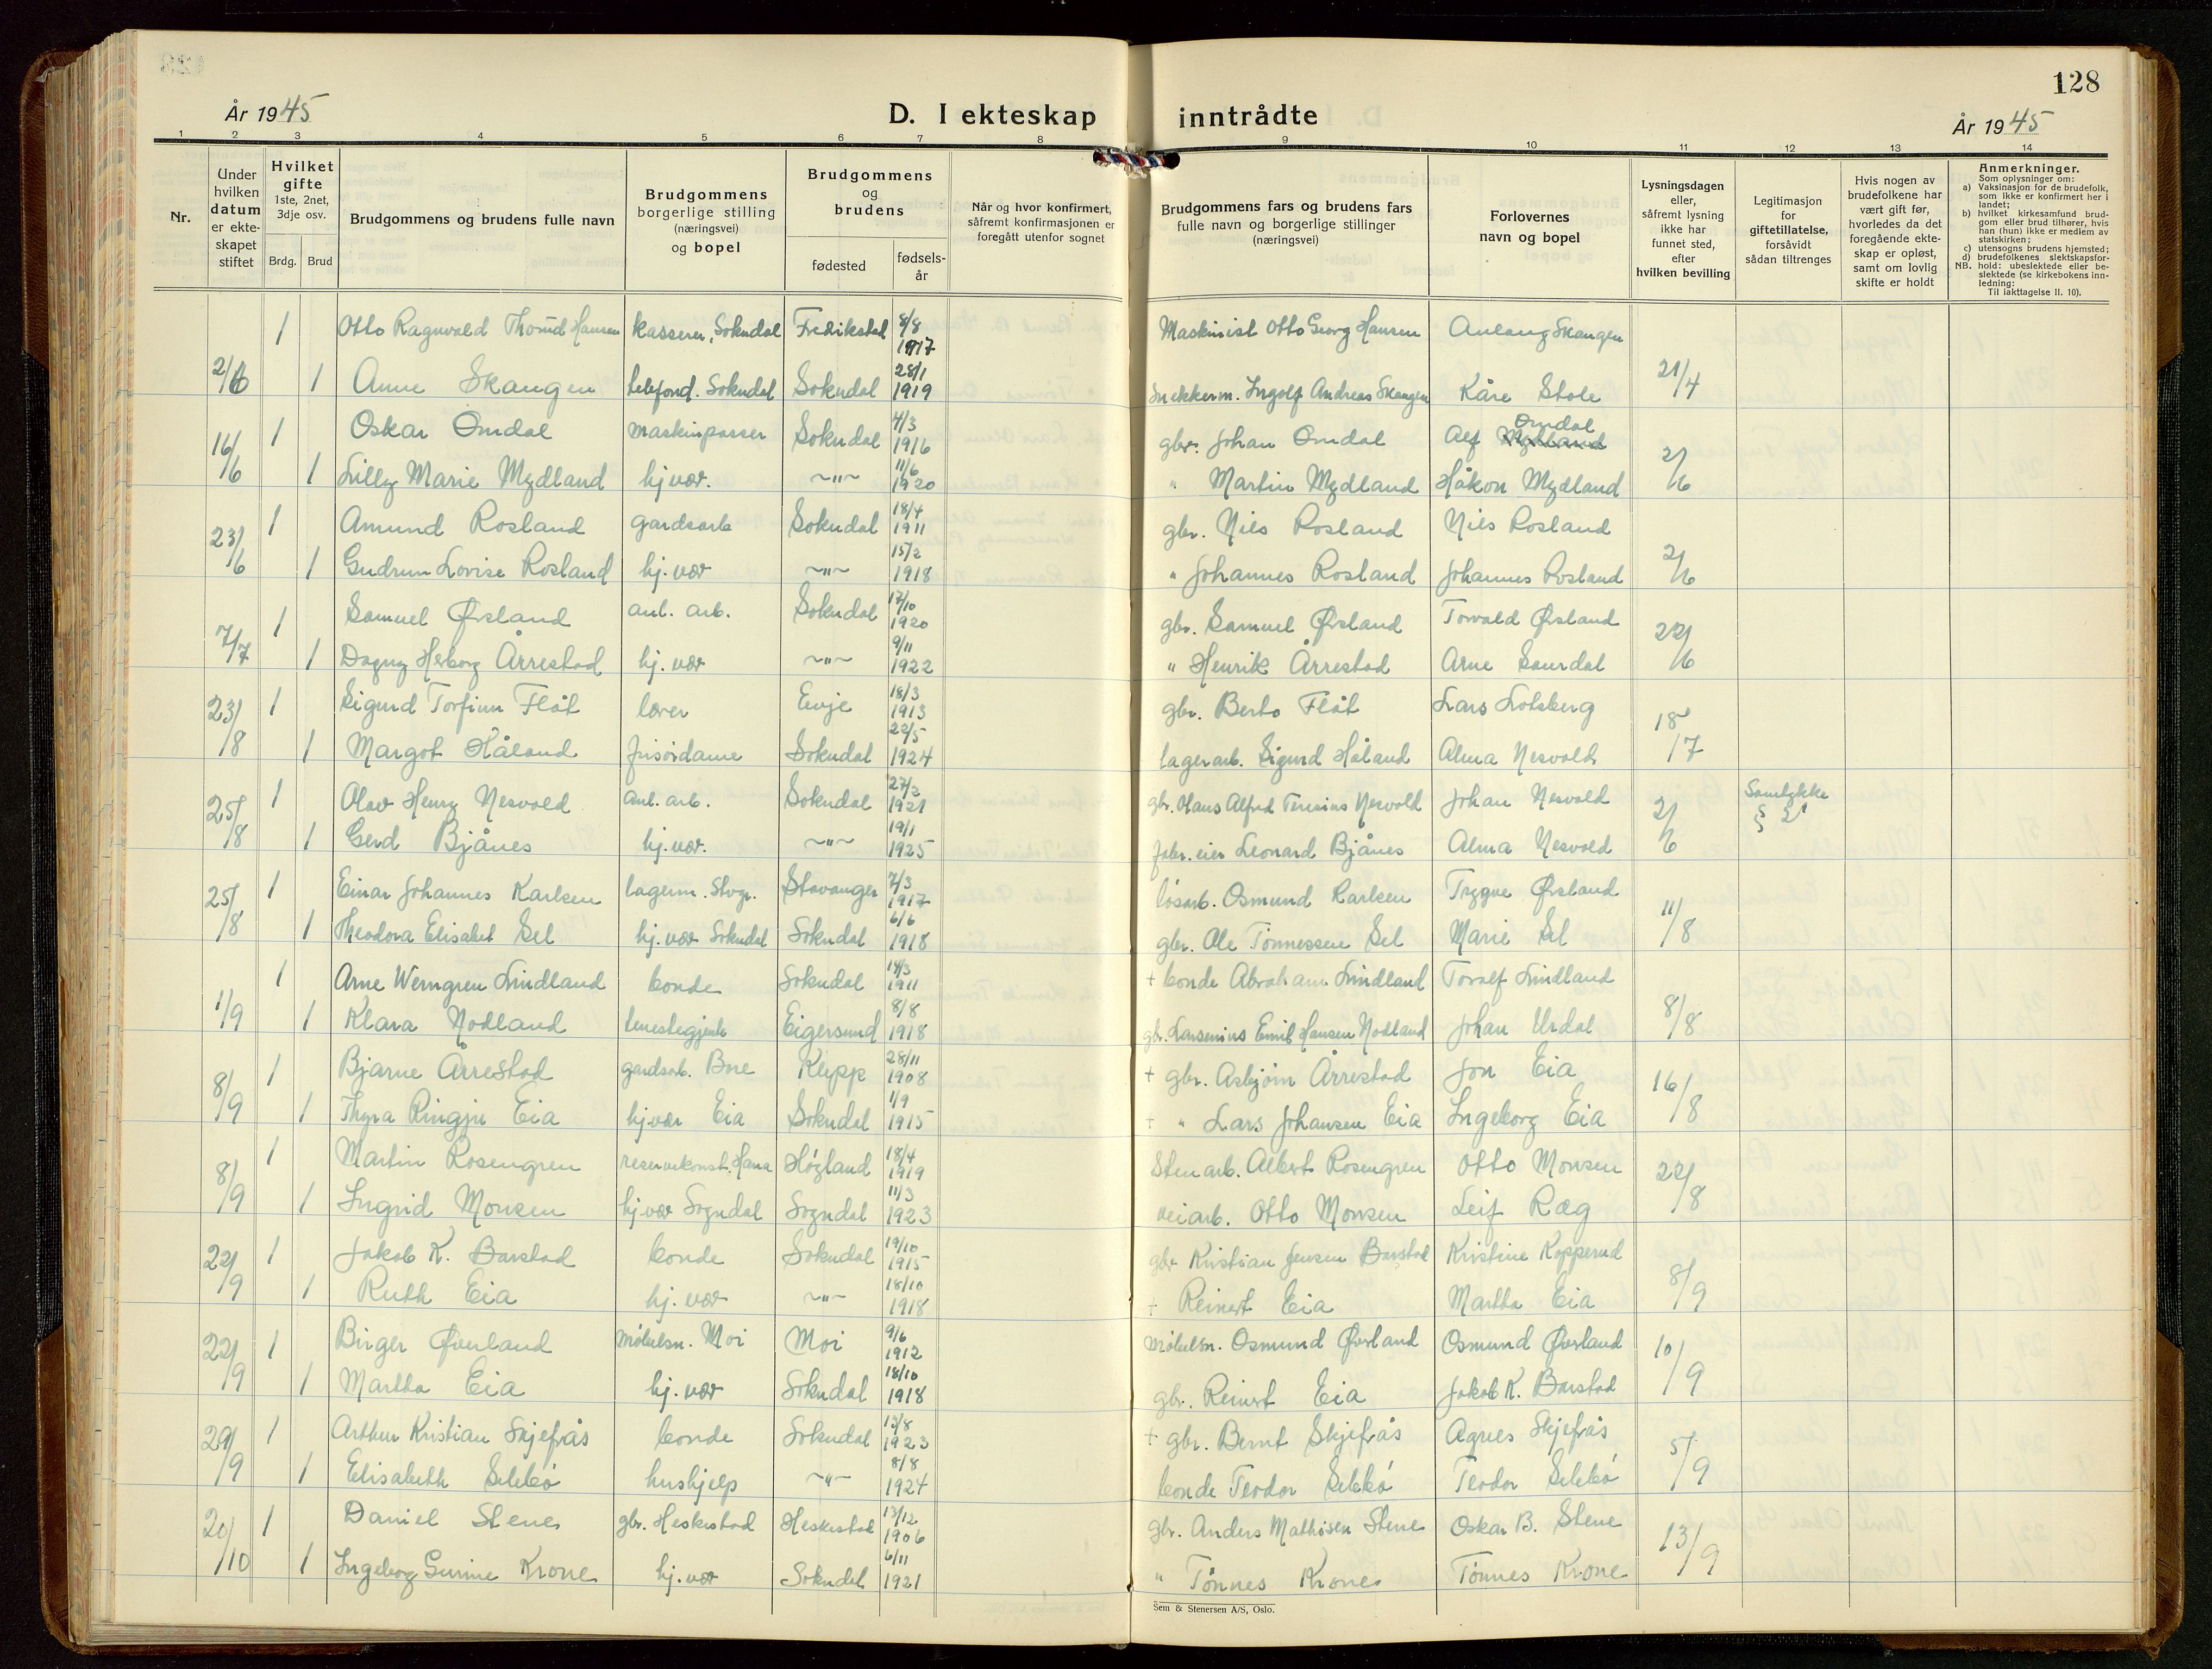 128
År 1945
D. I ekteskap inntrådte
År 1945
1 2 3 4 5 6 7 8 9 10 11 12 13 14
Nr.
Under hvilken datum er ekte-skapet stiftet
Hvilket gifte 1ste, 2net, 3dje osv.
Brdg. Brud
Brudgommens og brudens fulle navn
Brudgommens borgerlige stilling (næringsvei) og bopel
Brudgommens og brudens
fødested
fødsels-år
Når og hvor konfirmert, såfremt konfirmasjonen er foregått utenfor sognet
Brudgommens fars og brudens fars fulle navn og borgerlige stillinger (næringsvei)
Forlovernes navn og bopel
Lysningsdagen eller, såfremt lysning ikke har funnet sted, efter hvilken bevilling
Legitimasjon for giftetillatelse, forsåvidt sådan tiltrenges
Hvis nogen av brudefolkene har vært gift før, hvorledes da det foregående ekte-skap er opløst, samt om lovlig skifte er holdt
Anmerkninger.
Som oplysninger om:
a) Vaksinasjon for de brudefolk, som ikke er konfirmert her i landet;
b) hvilket kirkesamfund brud-gom eller brud tilhører, hvis han (hun) ikke er medlem av statskirken;
c) utensogns brudens hjemsted;
d) brudefolkenes slektskapsfor-hold: ubeslektede eller be-slektede (se kirkebokens inn-ledning:
NB. Til iakttagelse II. 10).
1 Otto Ragnvald Hansen kasserer, Sokndal Fredrikstad 8/8 1917 Maskinist Otto Georg Hansen Skangen
2/6 1 Anne Skangen telefond. Sokndal Sokndal 28/1 1919 Snekkerm. Ingolf Andreas Skangen Kåre Stole 21/4
16/6 1 Oskar Omdal maskinpasser Sokndal 4/3 1916 gbr. Johan Omdal Alf Mydland Omdal 2/6
1 Lilly Marie Mydland hj.vær. ~"~ 11/6 1920 " Martin Mydland Håkon Mydland
23/6 1 Amund Rosland gardsarb Sokndal 18/4 1911 gbr. Nils Rosland Nils Rosland 2/6
1 Gudrun Lovise Rosland hj.vær ~"~ 15/2 1918 " Johannes Rosland Johannes Rosland
7/7 1 Samuel Ørsland anl. arb. Sokndal 17/10 1920 gbr. Samuel Ørsland Torvald Ørsland 22/6
1 Dagny Herborg Årrestad hj. vær ~"~ 9/11 1922 " Henrik Årrestad Arne Saurdal
23/8 1 Sigurd Torfinn Flåt lærer Evje 18/3 1913 gbr. Berto Flåt Lars Lotsberg 18/7
1 Margot Håland frisørdame Sokndal 22/5 1924 lagerarb. Sigurd Håland Alma Nesvold
25/8 1 Olav Henry Nesvold anl. arb. Sokndal 27/2 1921 gbr. Hans Alfred Teresius Nesvold Johan Nesvold 2/6 Samtykke §
1 Gerd Bjånes hj.vær. ~"~ 19/1 1925 fabr. eier Leonard Bjånes Alma Nesvold
25/8 1 Einar Johannes Karlsen lagerm. Stvgr. Stavanger 7/3 1917 løsarb. Osmund Karlsen Trygve Ørsland 11/8
1 Theodora Elisabet Sel hj. vær Sokndal Sokndal 6/6 1918 gbr. Ole Tønnessen Sel Marie Sel
1/9 1 Arne Werngren Lindland bonde Sokndal 14/3 1911 + bonde Abraham Lindland Toralf Lindland 8/8
1 Klara Nodland tenestegjente Eigersund 8/8 1918 gbr. Larsenius Emil Hansen Nodland Johan Urdal
8/9 1 Bjarne Årrestad gardsarb. Bne Klepp 28/11 1908 + gbr. Asbjørn Årrestad Jon Eia 16/8
1 Thyra Ringju Eia hj.vær Eia Sokndal 1/9 1915 + " Lars Johansen Eia Ingeborg Eia
8/9 1 Martin Rosengren reservekonst. Hana Høgland 18/4 1919 Stenarb. Albert Rosengren Otto Monsen 22/8
1 Ingrid Monsen hj.vær Sogndal Sogndal 11/3 1923 veiarb. Otto Monsen Leif Ræg
22/9 1 Jakob K. Barstad bonde Sokndal 19/10 1915 gbr Kristian Jensen Barstad Kristine Kopperud 8/9
1 Ruth Eia hj. vær ~"~ 18/10 1918 + Reinert Eia Martha Eia
22/9 1 Birger Øverland møbelsn. Moi Moi 9/6 1912 møbelsn. Osmund Øverland Osmund Øverland 10/9
1 Martha Eia hj. vær Sokndal 18/10 1918 gbr. Reinert Eia Jakob K. Barstad
29/9 1 Arthur Kristian Skjefrås bonde Sokndal 13/8 1923 + gbr. Bernt Skjefrås Agnes Skjefrås 5/9
1 Elisabeth Selebø hushjelp ~"~ 8/8 1924 bonde Teodor Selebø Teodor Selebø
20/10 1 Daniel Stene gbr. Heskestad Heskestad 13/12 1906 gbr. Anders Mathisen Stene Oskar B. Stene 13/9
1 Ingeborg Gurine Krone hj. vær Sokndal 6/11 1921 " Tønnes Krone Tønnes Krone
Sem & Stenersen A/S, Oslo.